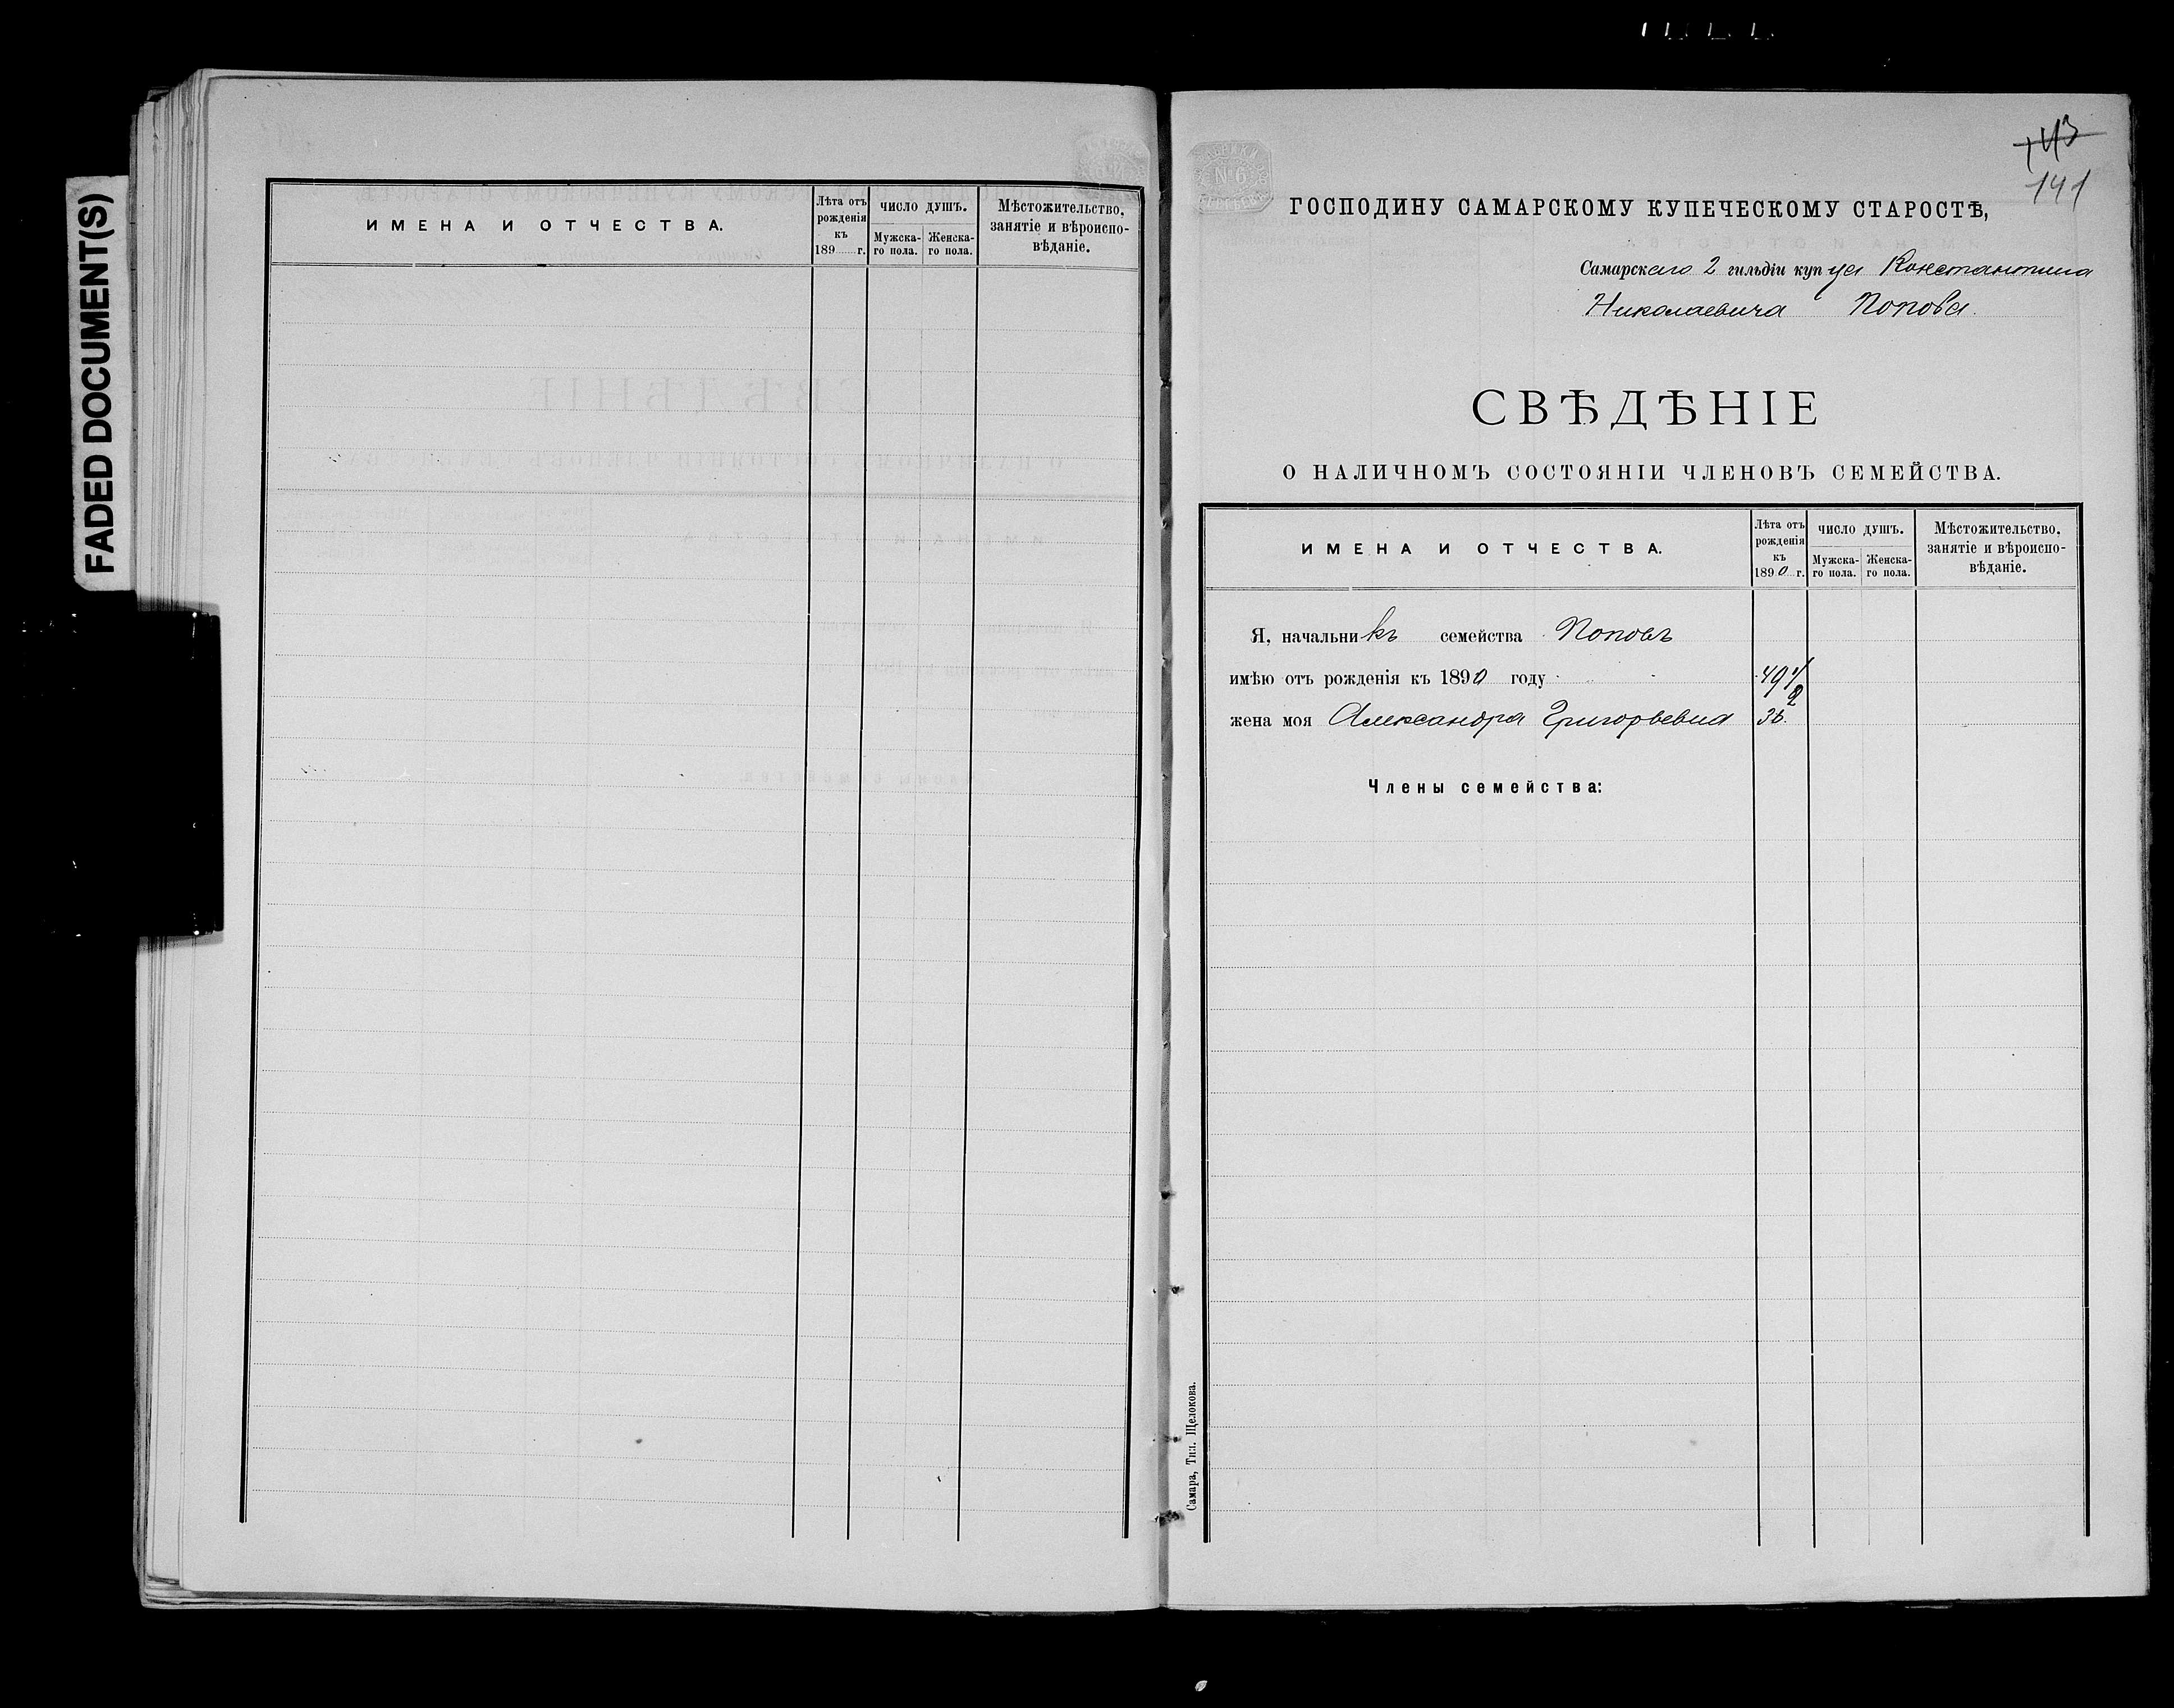 FADED DOCUMENT(S)
ИМЕНА И ОТЧЕСТВА.
Лѣта отъ рожденія къ 189 г.
ЧИСЛО ДУШЪ.
Мужска-го пола.
Женска-го пола.
Мѣстожительство, занятіе и вѣроиспо-вѣданіе.
143
141
№ 6
ГОСПОДИНУ САМАРСКОМУ КУПЕЧЕСКОМУ СТАРОСТѢ,
Самарскаго 2 гильдіи купца Константина
Николаевича Попова.
СВѢДѢНІЕ
О НАЛИЧНОМЪ СОСТОЯНІИ ЧЛЕНОВЪ СЕМЕЙСТВА.
ИМЕНА И ОТЧЕСТВА.
Лѣта отъ рожденія къ 1890 г.
ЧИСЛО ДУШЪ.
Мужска-го пола.
Женска-го пола.
Мѣстожительство, занятіе и вѣроиспо-вѣданіе.
Я, начальникъ семейства Поповъ
имѣю отъ рожденія къ 1890 году 49 1/2
жена моя Александра Григорьевна
Члены семейства:
Самара, Тип. Щелокова.